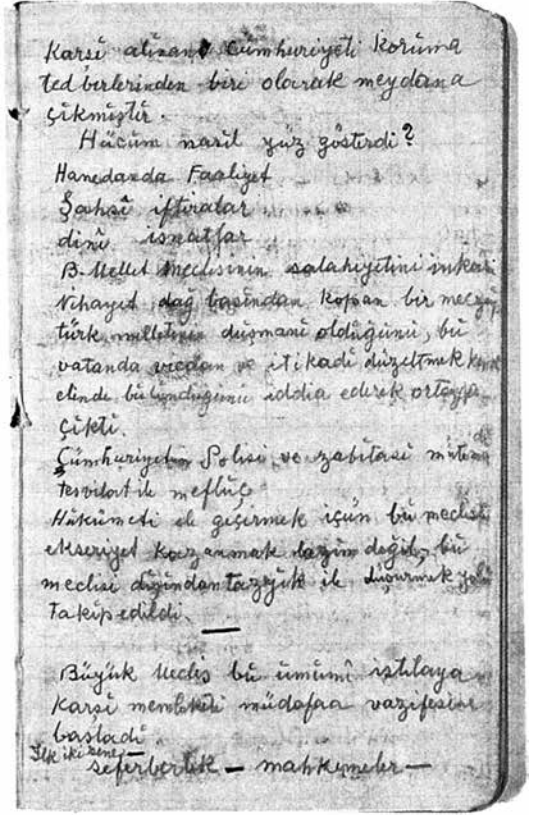 Karsi alinan Cümhuriyeti Koruma
tedbirlerinden biri olarak meydana
çikmiştir.
Hücüm nasil yüz gösterdi?
Hanedanda Faaliyet
Şahsî iftiralar
dinî isnatlar
B. Millet Meclisinin salahiyetini inkâri
Nihayet dağ başindan kopan bir
türk milletinin düşmani olduğunu, bu
vatanda vicdan ve itikadi düzeltmek
elinde bülündüğünü iddia ederek ortaya
çikti.
Cümhuriyetin Polisi ve zabitasi
ile meflüç
Hükümeti ele geçirmek içün bu mecliste
ekseriyet kazanmak lazim değil, bu
meclisi dişindan tazyik ile düşürmek yolu
Takip edildi.
Büyük Meclis bu ümümî istilaya
Karşi memleketi müdafaa vazifesine
başladi
Ilk iki sene —
seferberlik — mahkemeler —